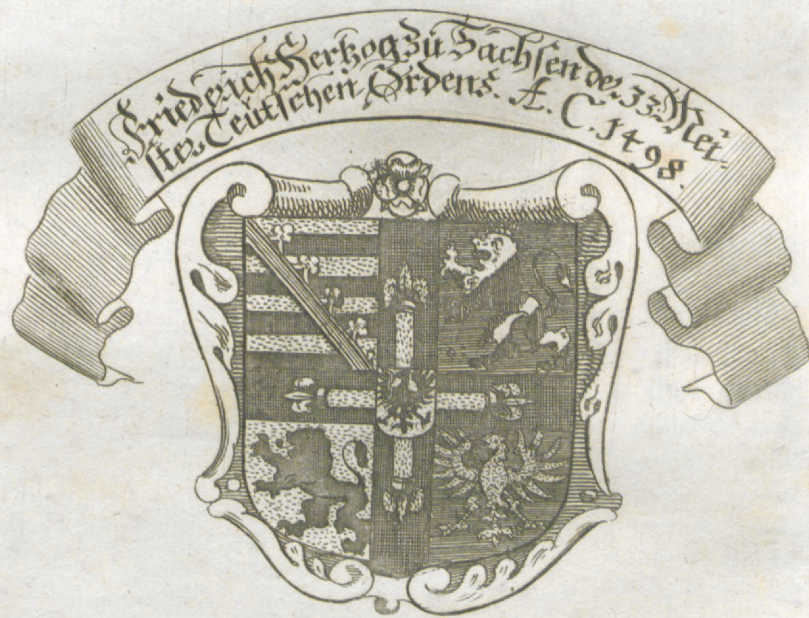 Friederich Hertzog zu Sachsen der 33 Mei-
ster Teutschen Ordens. A. C. 1498.